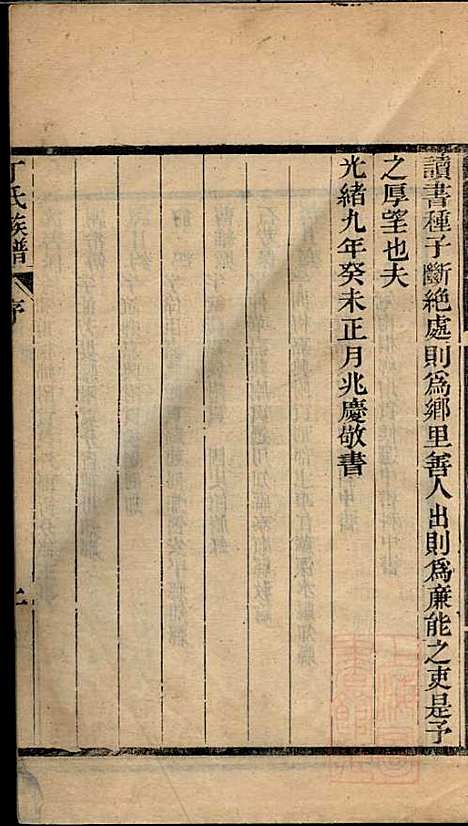 讀書種子斷絕處則爲鄉里善人出則爲廉能之吏是予
之厚望也夫
光緒九年癸未正月兆慶敬書
丁氏族譜
序